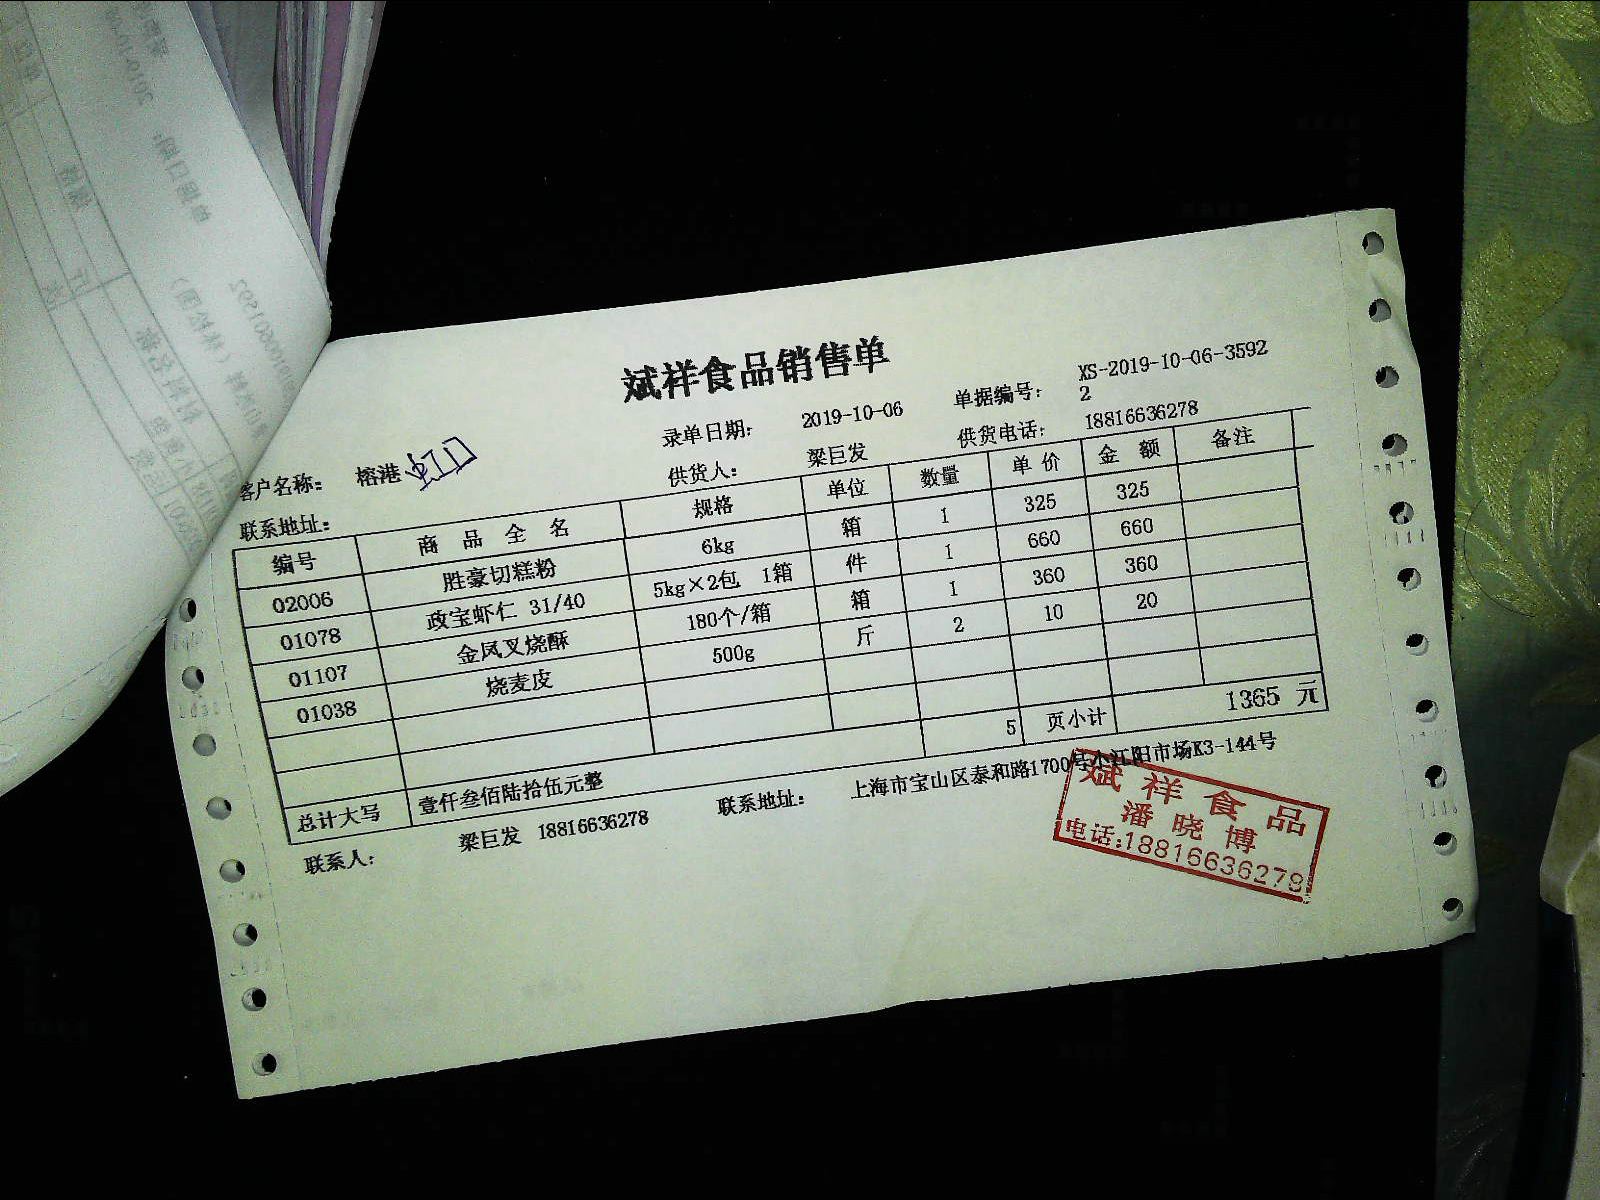 斌祥食品销售单
录单日期: 2019-10-06 单据编号: XS-2019-10-06-3592
2
客户名称: 榕港 虹口 供货人: 梁巨发 供货电话: 18816636278
联系地址:
编号 商品全名 规格 单位 数量 单价 金额 备注
02006 胜豪切糕粉 6kg 箱 1 325 325
01078 政宝虾仁 31/40 5kg×2包 1箱 件 1 660 660
01107 金凤叉烧酥 180个/箱 箱 1 360 360
01038 烧麦皮 500g 斤 2 10 20
5 页小计 1365 元
总计大写 壹仟叁佰陆拾伍元整
联系人: 梁巨发 18816636278 联系地址: 上海市宝山区泰和路1700号小江阳市场K3-144号
斌祥食品
潘晓博
电话:18816636278